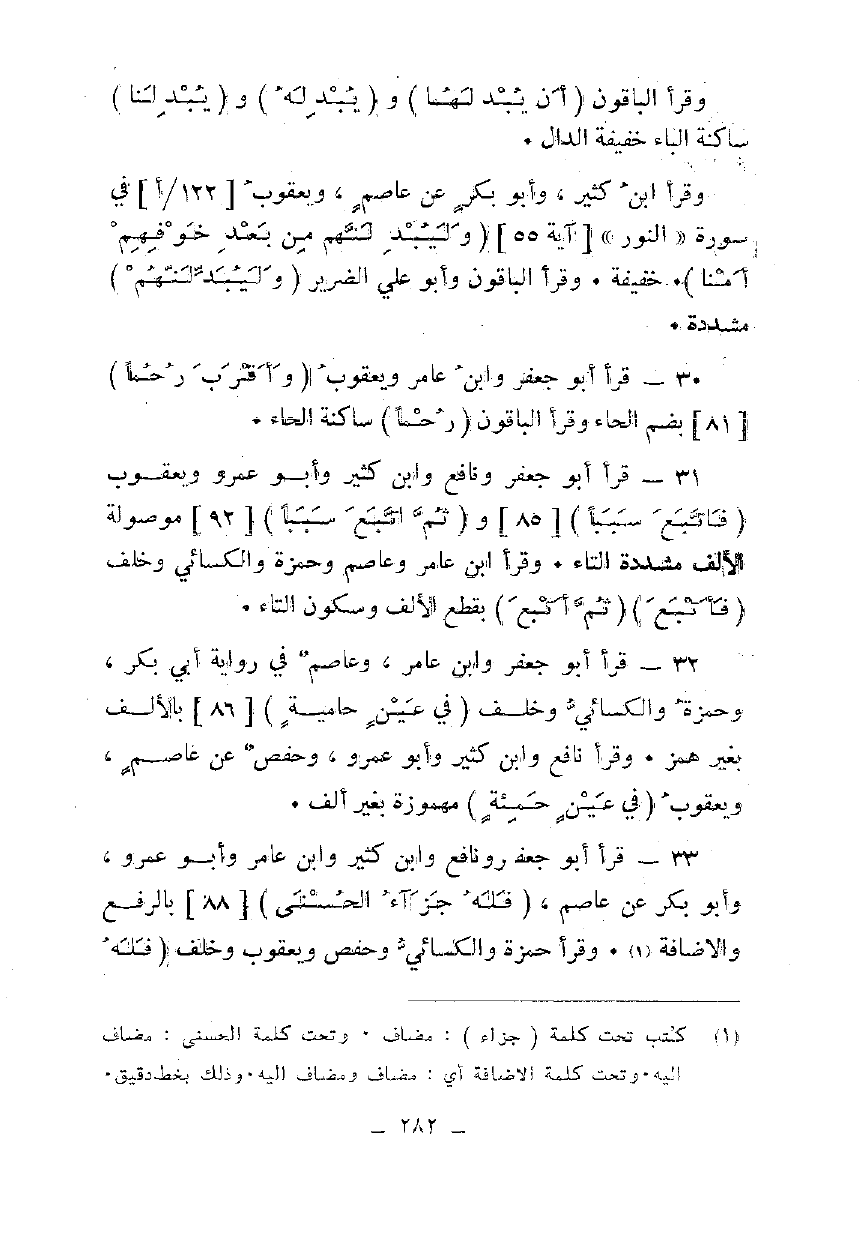 وقرأ الباقون ( أَن يُبْدِلَهُما ) و ( يُبْدِلَهُ ) و ( يُبْدِلَنا )
ساكنة الباء خفيفة الدال .
وقرأ ابنُ كثير ، وأبو بكرٍ عن عاصمٍ ، ويعقوبُ [ ١٢٢/أ ] في
سورة « النور » [ آية ٥٥ ] ( وَلَيُبْدِلَنَّهُم مِن بَعْدِ خَوْفِهِمْ
أَمْنا ). خفيفة . وقرأ الباقون وأبو علي الضرير ( وَلَيُبَدِّلَنَّهُمْ )
مشددة .
٣٠ ــ قرأ أبو جعفر وابنُ عامر ويعقوبُ ( وَأَقْرَبَ رُحُماً )
[ ٨١ ] بضم الحاء وقرأ الباقون ( رُحْماً ) ساكنة الحاء .
٣١ ــ قرأ أبو جعفر ونافع وابن كثير وأبــو عمرو ويعقــوب
( فَاتَّبَعَ سَبَباً ) [ ٨٥ ] و ( ثُمَّ اتَّبَعَ سَبَباً ) [ ٩٢ ] موصولة
الألف مشددة التاء . وقرأ ابن عامر وعاصم وحمزة والكسائي وخلف
( فَأَتْبَعَ ) ( ثُمَّ أَتْبَعَ ) بقطع الألف وسكون التاء .
٣٢ ــ قرأ أبو جعفر وابن عامر ، وعاصمٌ في رواية أبي بكر ،
وحمزةُ والكسائيُّ وخلــف ( في عَيْنٍ حامِيــةٍ ) [ ٨٦ ] بالألــف
بغير همز . وقرأ نافع وابن كثير وأبو عمرو ، وحفصٌ عن عاصــمٍ ،
ويعقوبُ ( في عَيْنٍ حَمِئَةٍ ) مهموزة بغير ألف .
٣٣ ــ قرأ أبو جعفر ونافع وابن كثير وابن عامر وأبــو عمرو ،
وأبو بكر عن عاصم ، ( فَلَهُ جَزَاءُ الحُسْنَى ) [ ٨٨ ] بالرفــع
والاضافة (١) . وقرأ حمزة والكسائيُّ وحفص ويعقوب وخلف ( فَلَهُ
(١) كُتب تحت كلمة ( جزاء ) : مضاف . وتحت كلمة الحسنى : مضاف
اليه . وتحت كلمة الاضافة أي : مضاف ومضاف اليه . وذلك بخط دقيق .
ــ ٢٨٢ ــ